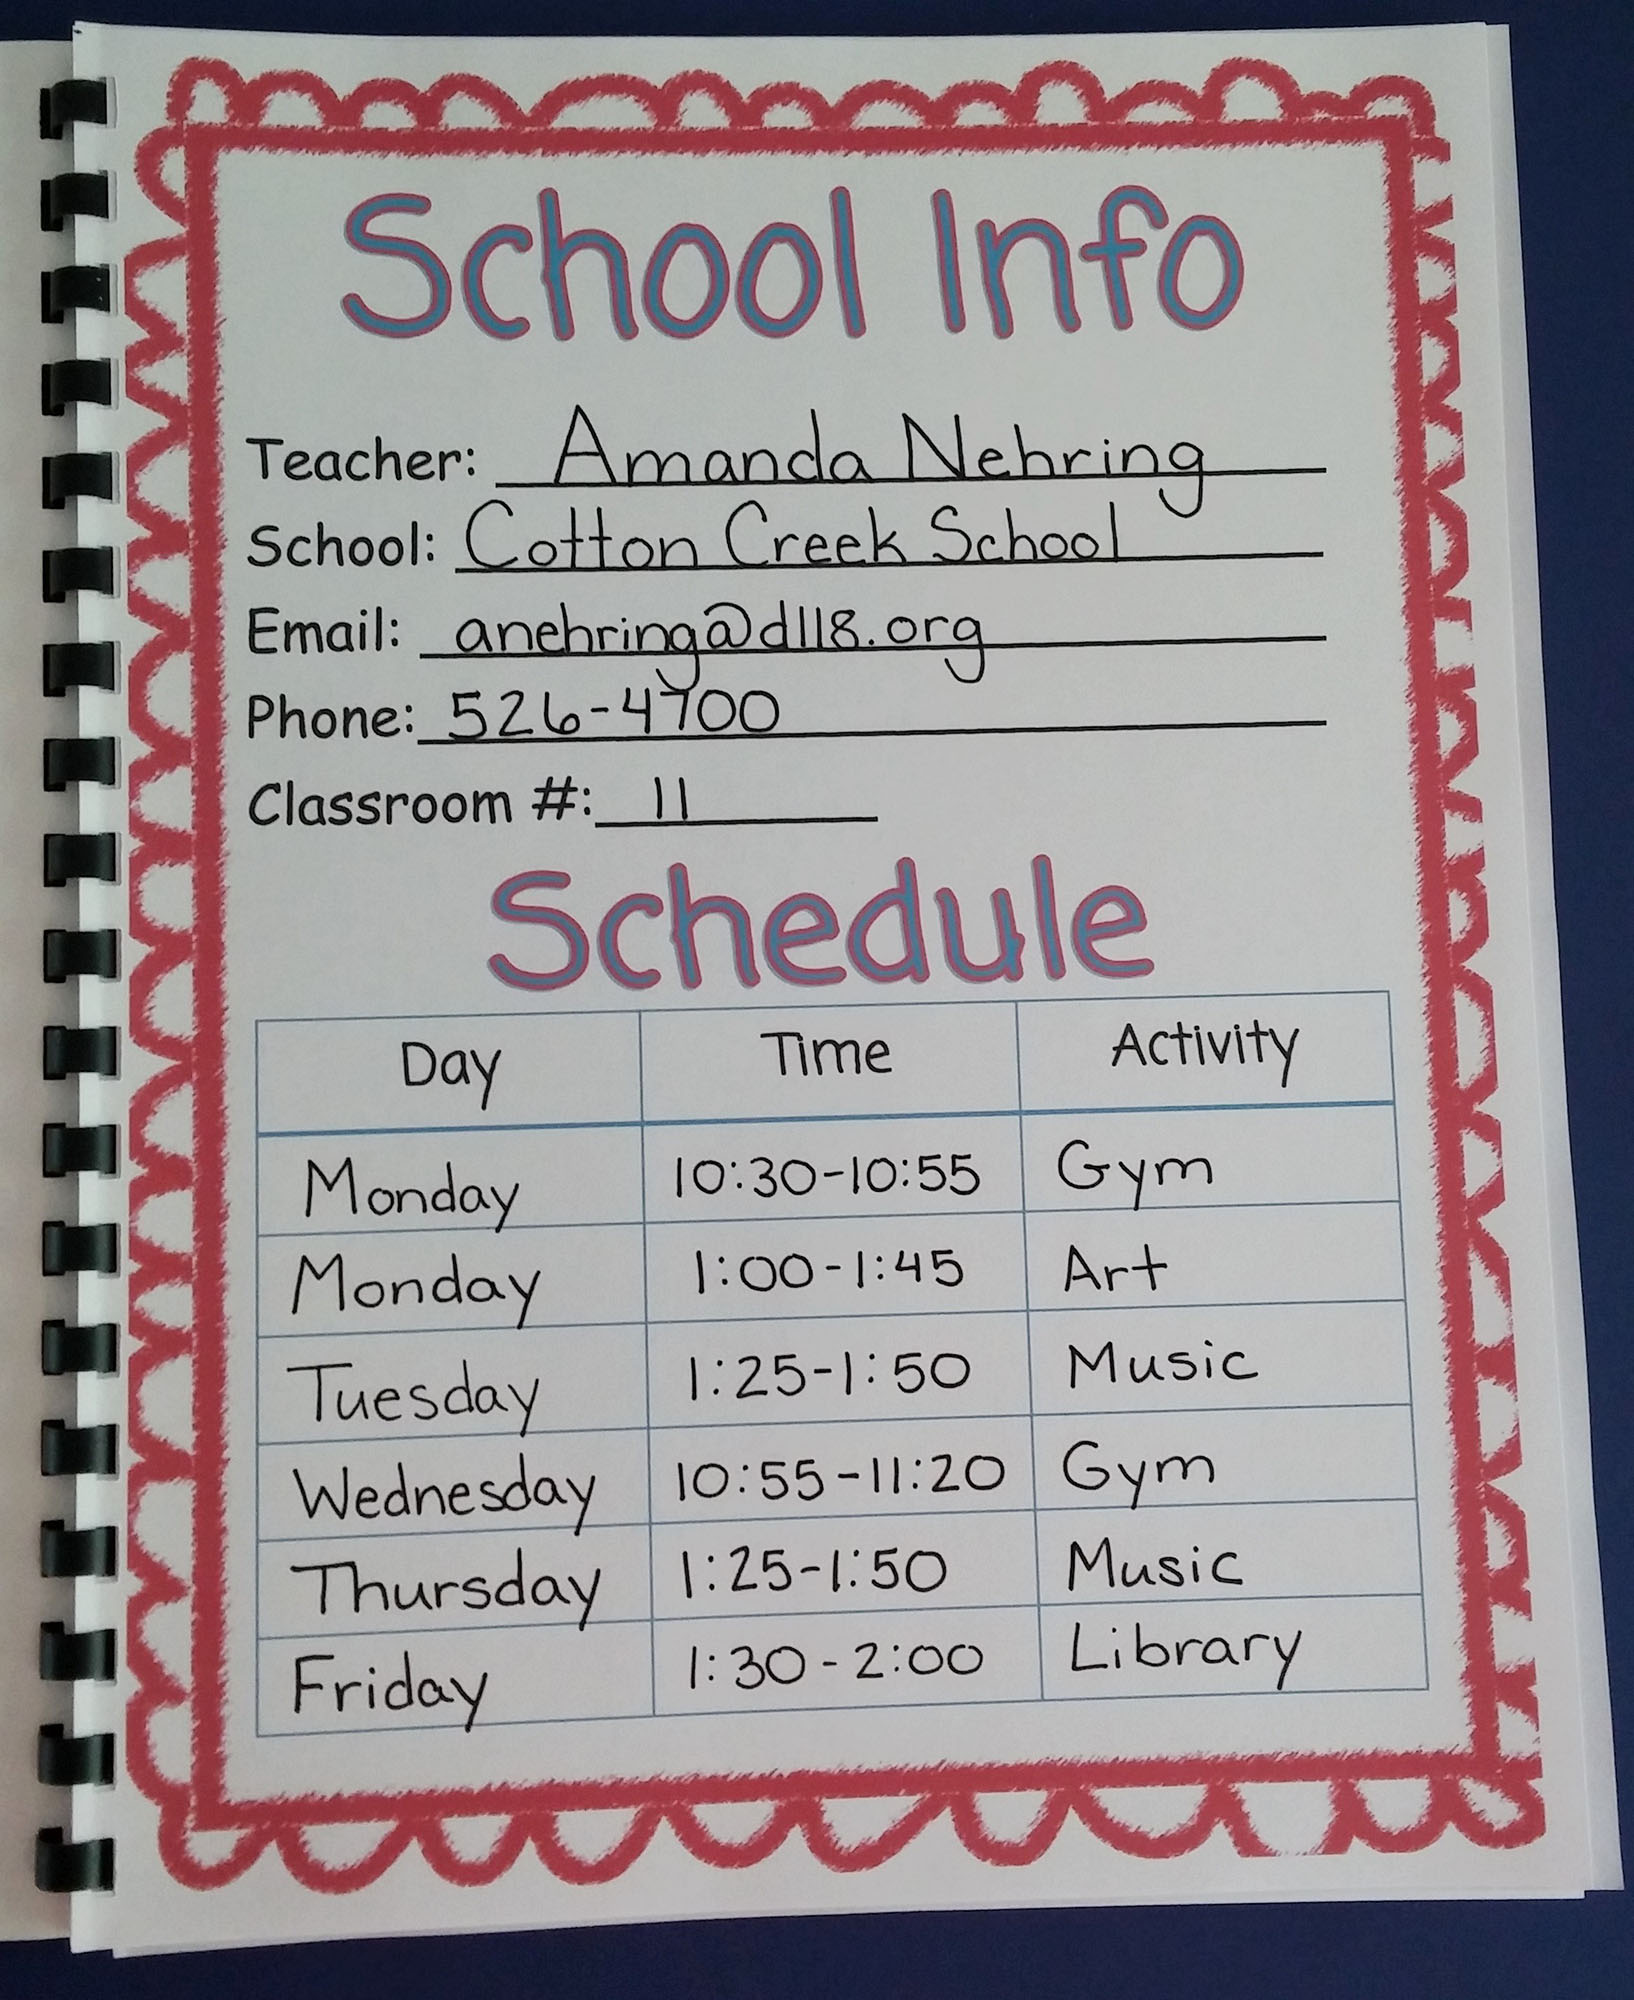 School Info
Teacher: Amanda Nehring
School: Cotton Creek School
Email: anehring@d118.org
Phone: 526-4700
Classroom #: 11
Schedule
Day Time Activity
Monday 10:30-10:55 Gym
Monday 1:00-1:45 Art
Tuesday 1:25-1:50 Music
Wednesday 10:55-11:20 Gym
Thursday 1:25-1:50 Music
Friday 1:30-2:00 Library